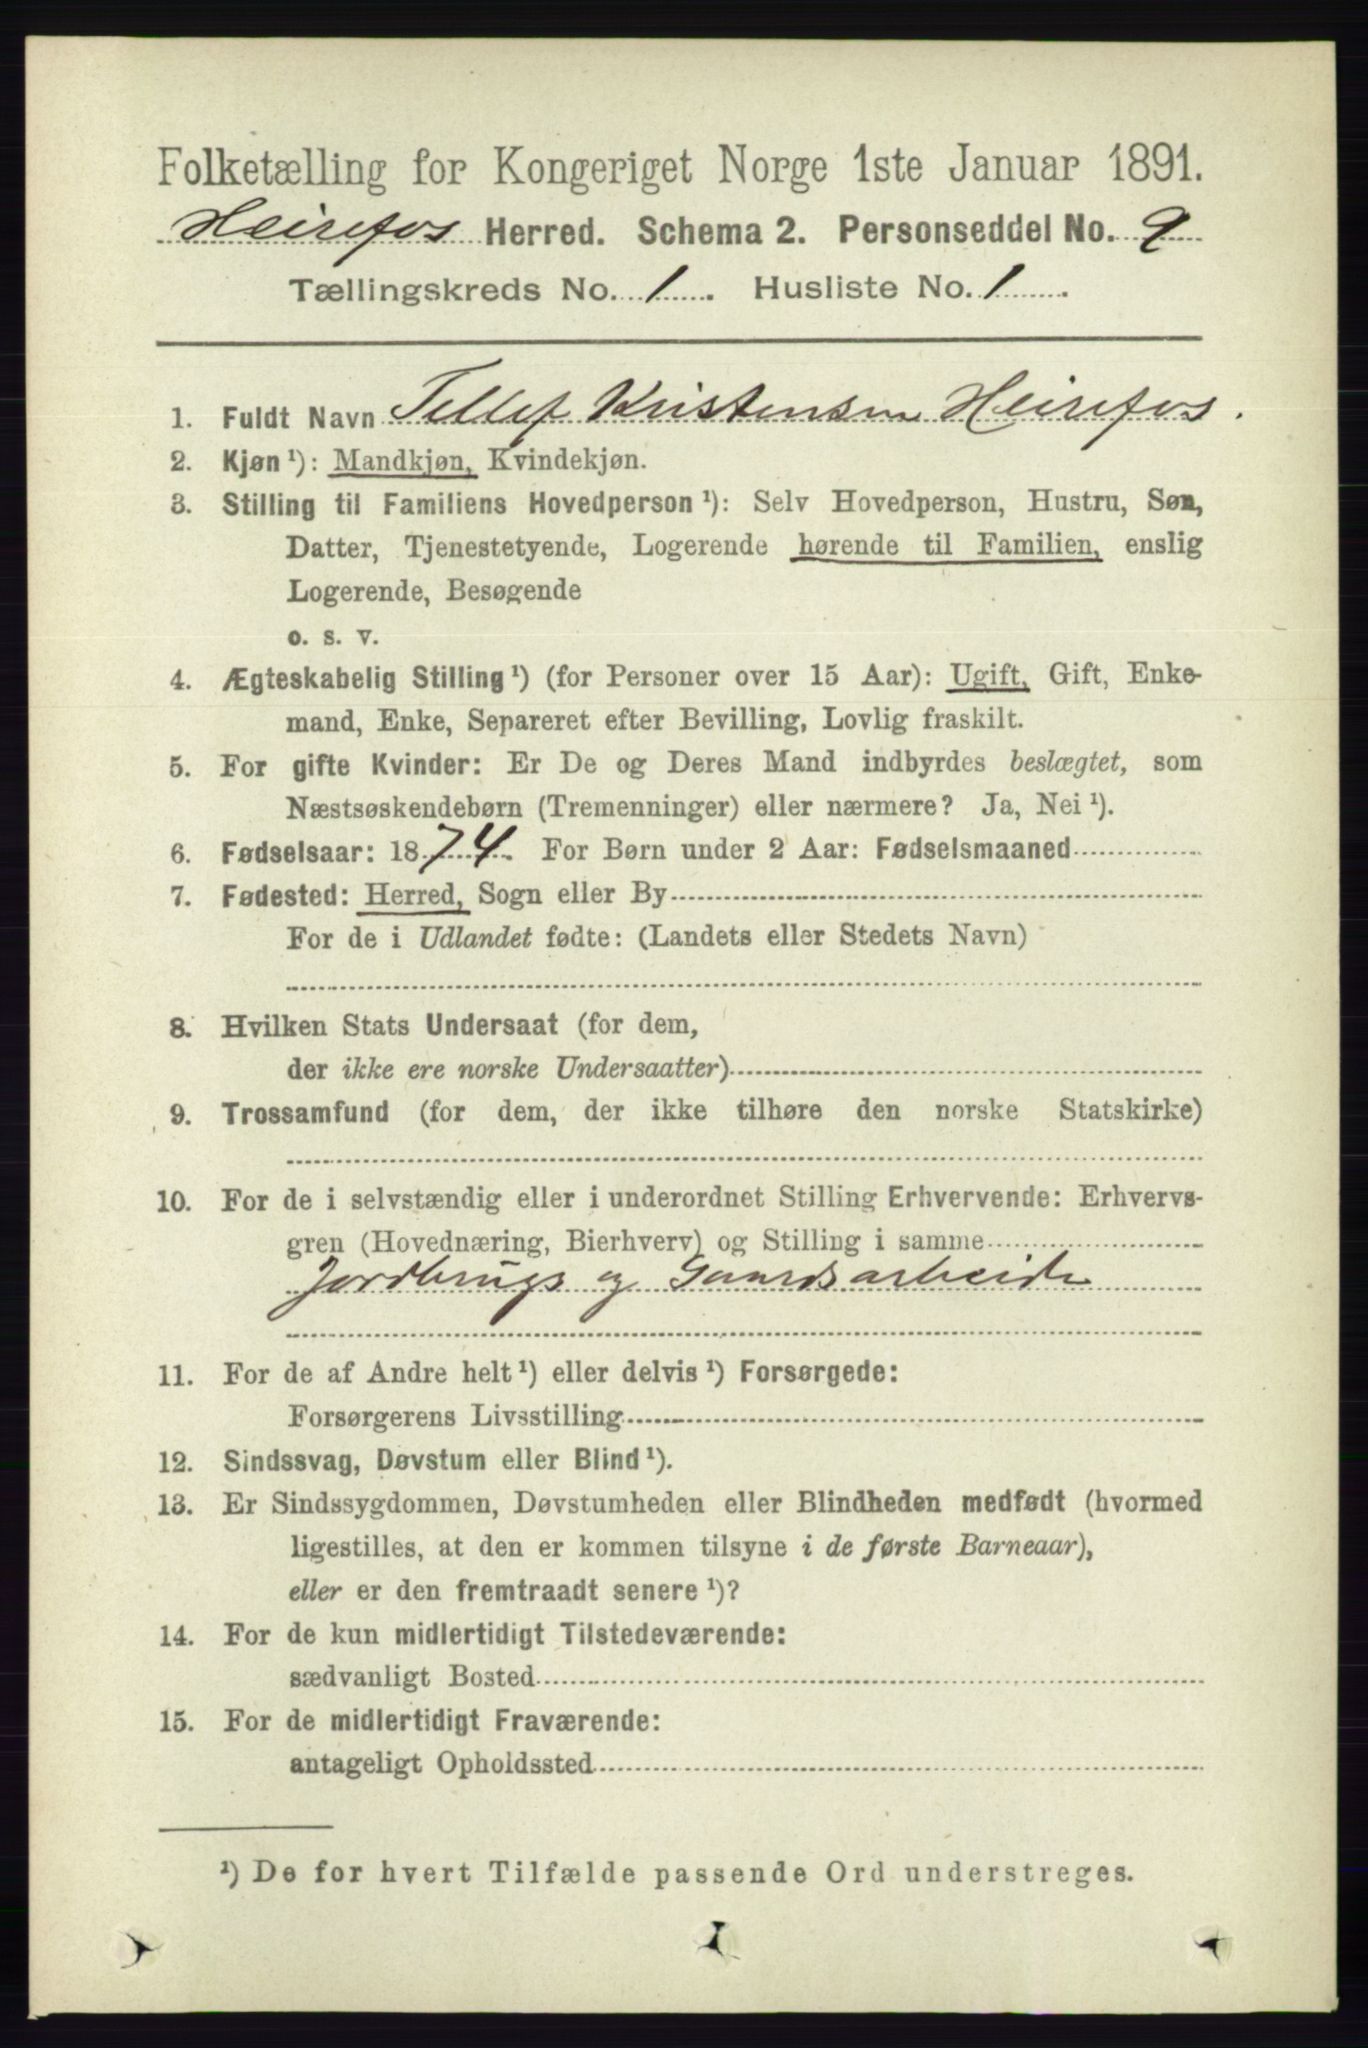 Folketælling for Kongeriget Norge 1ste Januar 1891.
Heirefos Herred. Schema 2. Personseddel No. 9
Tællingskreds No. 1. Husliste No. 1.
1. Fuldt Navn Tellef Kristensen Heirefos.
2. Kjøn ¹): Mandkjøn, Kvindekjøn.
3. Stilling til Familiens Hovedperson ¹): Selv Hovedperson, Hustru, Søn,
Datter, Tjenestetyende, Logerende hørende til Familien, enslig
Logerende, Besøgende
o. s. v.
4. Ægteskabelig Stilling ¹) (for Personer over 15 Aar): Ugift, Gift, Enke-
mand, Enke, Separeret efter Bevilling, Lovlig fraskilt.
5. For gifte Kvinder: Er De og Deres Mand indbyrdes beslægtet, som
Næstsøskendebørn (Tremenninger) eller nærmere? Ja, Nei ¹).
6. Fødselsaar: 1874. For Børn under 2 Aar: Fødselsmaaned
7. Fødested: Herred, Sogn eller By
For de i Udlandet fødte: (Landets eller Stedets Navn)
8. Hvilken Stats Undersaat (for dem,
der ikke ere norske Undersaatter)
9. Trossamfund (for dem, der ikke tilhøre den norske Statskirke)
10. For de i selvstændig eller i underordnet Stilling Erhvervende: Erhvervs-
gren (Hovednæring, Bierhverv) og Stilling i samme
Jordbrugs og Gaardsarbeide
11. For de af Andre helt ¹) eller delvis ¹) Forsørgede:
Forsørgerens Livsstilling
12. Sindssvag, Døvstum eller Blind ¹).
13. Er Sindssygdommen, Døvstumheden eller Blindheden medfødt (hvormed
ligestilles, at den er kommen tilsyne i de første Barneaar),
eller er den fremtraadt senere ¹)?
14. For de kun midlertidigt Tilstedeværende:
sædvanligt Bosted
15. For de midlertidigt Fraværende:
antageligt Opholdssted
¹) De for hvert Tilfælde passende Ord understreges.